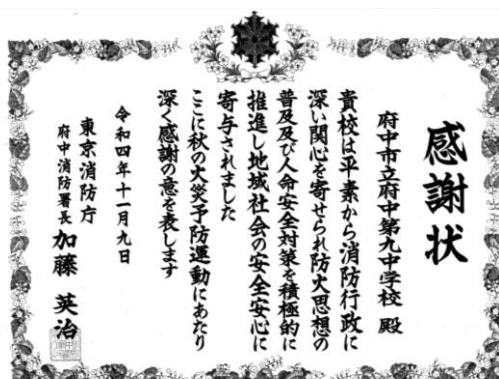 感謝状
府中市立府中第九中学校 殿
貴校は平素から消防行政に
深い関心を寄せられ防火思想の
普及及び人命安全対策を積極的に
推進し地域社会の安全安心に
寄与されました
ここに秋の火災予防運動にあたり
深く感謝の意を表します
令和四年十一月九日
東京消防庁
府中消防署長 加藤 英治